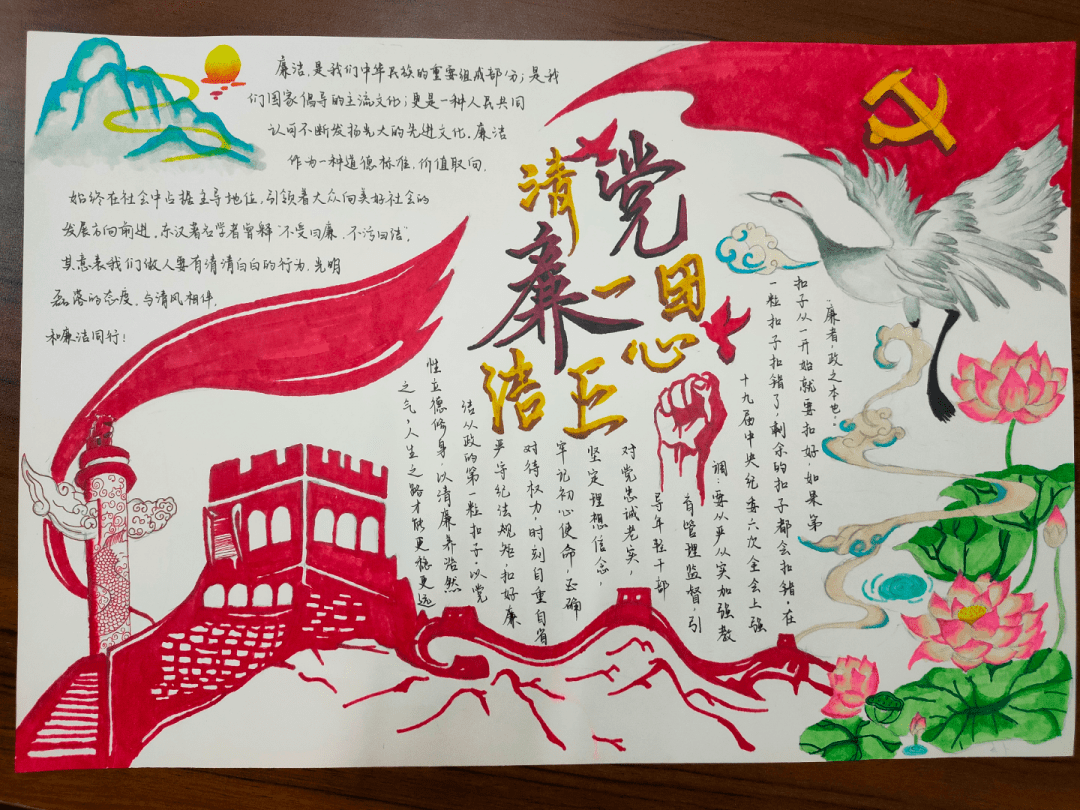 廉洁,是我们中华民族的重要组成部分;是我
们国家倡导的主流文化;更是一种人民共同
认可不断发扬光大的先进文化,廉洁
作为一种道德标准,价值取向,
始终在社会中占据主导地位,引领着大众向美好社会的
发展方向前进,东汉著名学者曾释"不受曰廉,不污曰洁",
其意表我们做人要有清清白白的行为,光明
磊落的态度,与清风相伴,
和廉洁同行!
清党
廉一团
洁正心
"廉者,政之本也。"
扣子从一开始就要扣好,如果第
一粒扣子扣错了,剩余的扣子都会扣错,在
十九届中央纪委六次全会上强
调:要从严从实加强教
育管理监督,引
导年轻干部
对党忠诚老实,
坚定理想信念,
牢记初心使命,正确
对待权力,时刻自重自省
严守纪法规矩,扣好廉
洁从政的第一粒扣子,以党
性立德修身,以清廉养浩然
之气,人生之路才能更稳更远